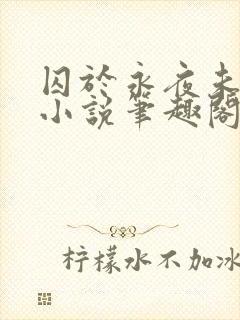 囚於永夜未
小说笔趣阁
柠檬水不加冰